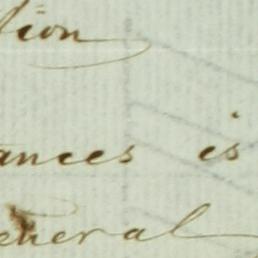 tion
ances is
eneral